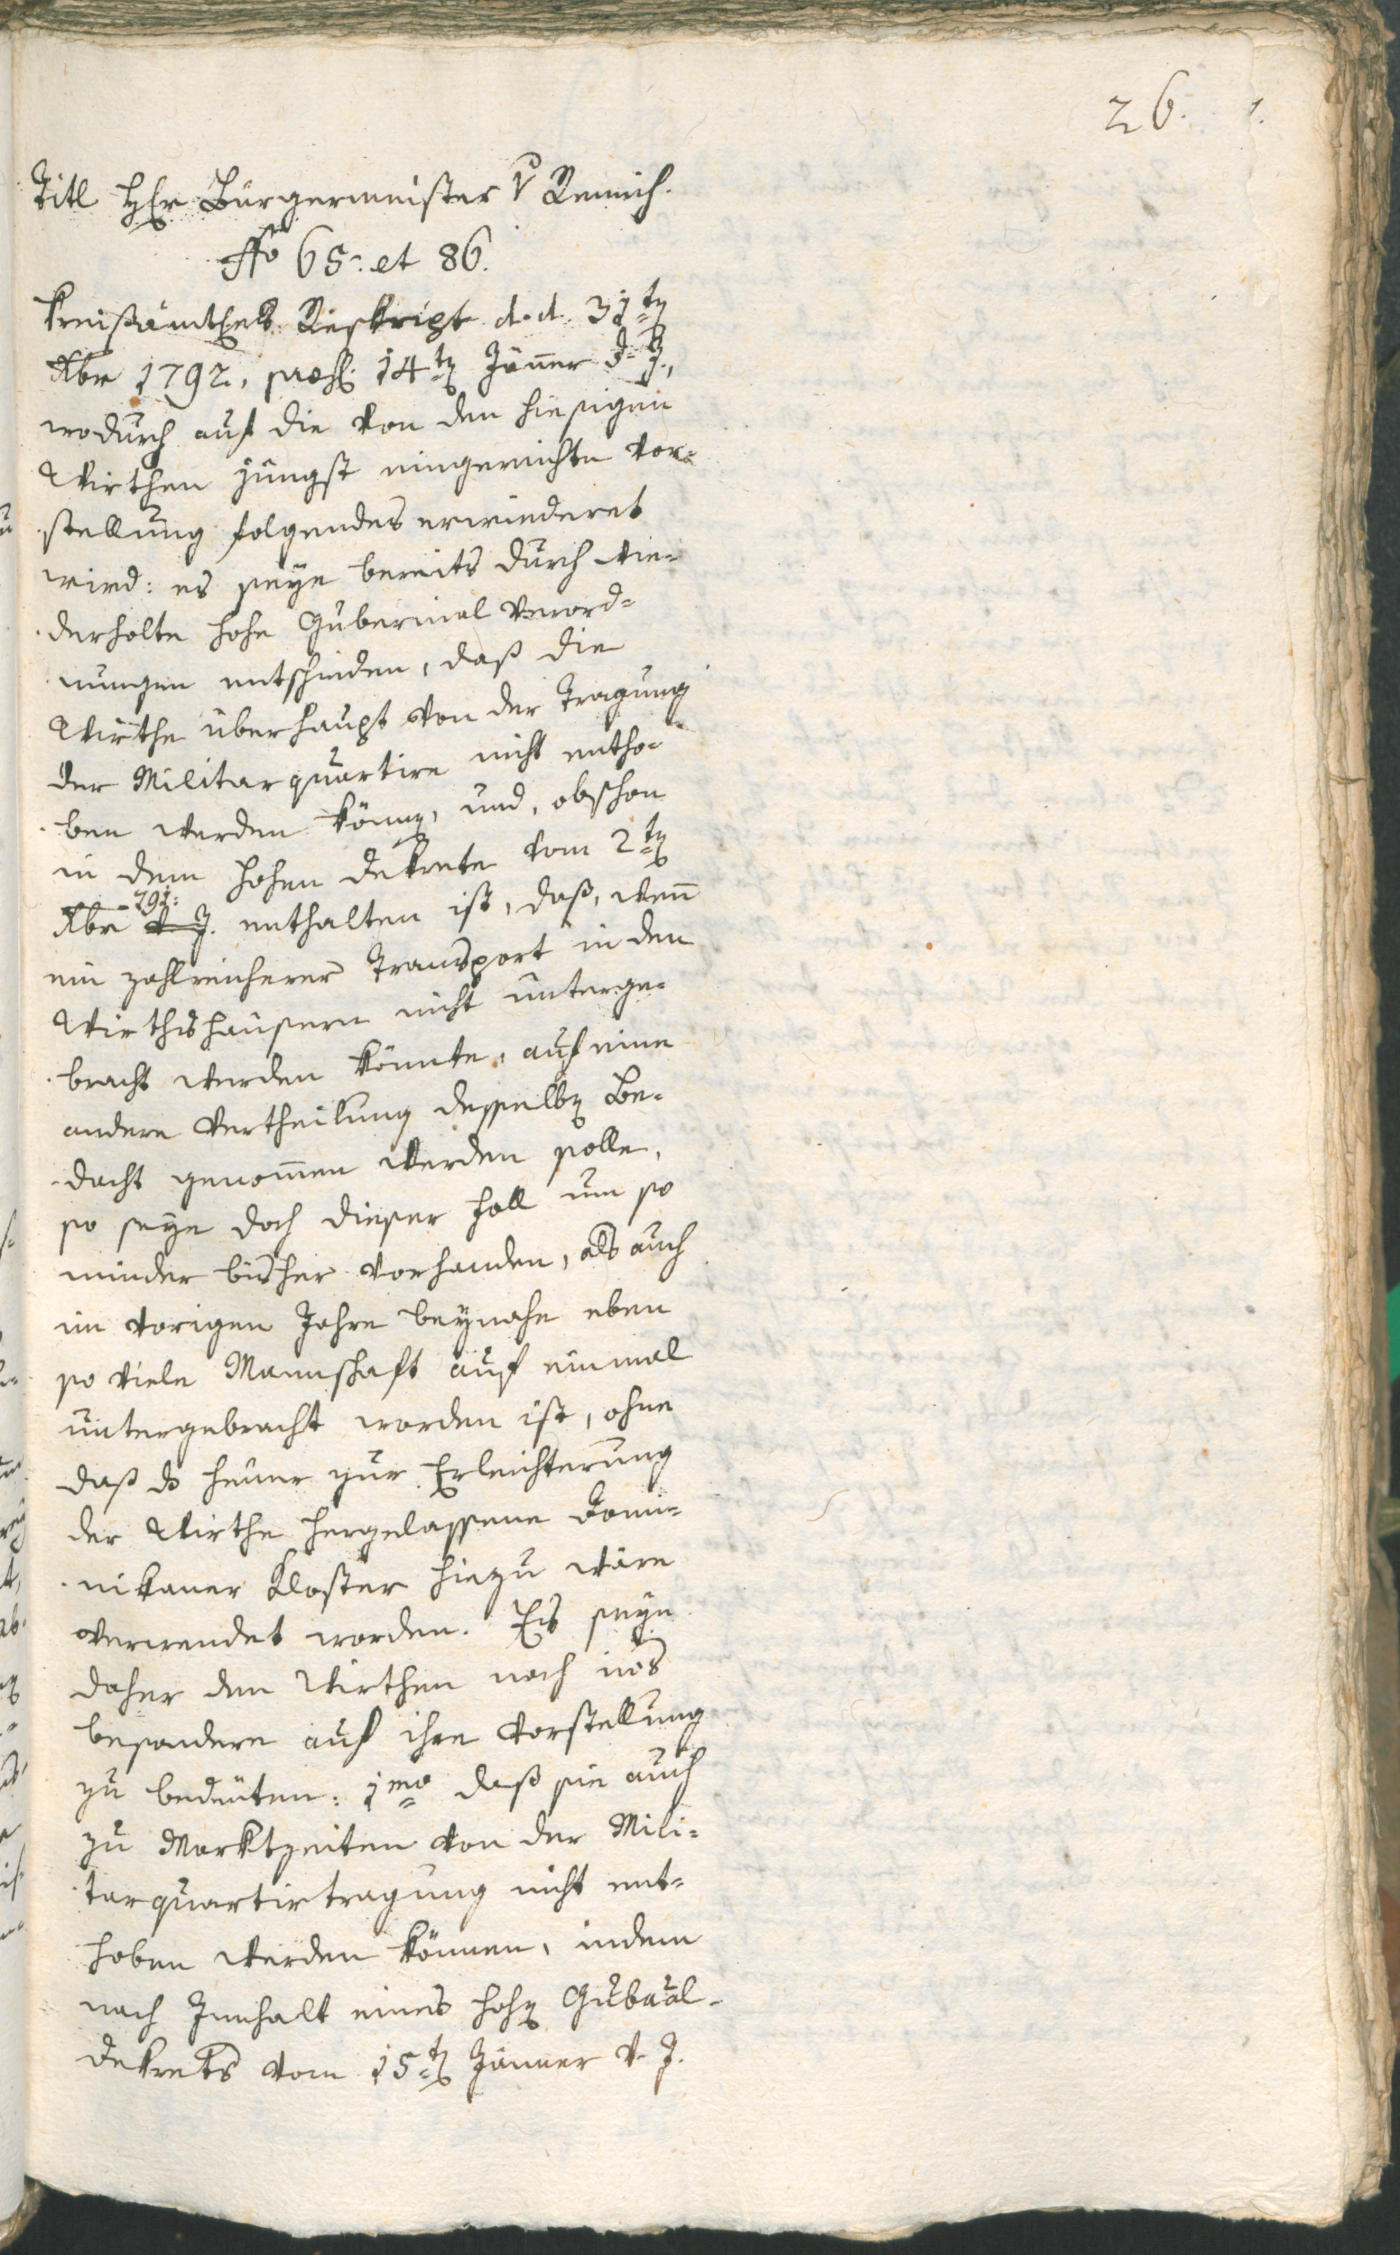 26.
Titl HEr Bürgermeister v Remich.
No 65. et 86.
Kreißämtles Reskript d. d. 31ten
Xbr 1792, præs. 14ten Jäner d. J.,
wodurch auf die von den hiesigen
Wirthen jüngst eingereichte Vor=
stellung folgendes erwiederet
wird: es seye bereits durch wie=
derholte hohe Gubernial Verord=
nungen entschieden, daß die
Wirthe überhaupt von der Tragung
der Militarquartire nicht entho=
ben werden könen, und, obschon
in dem hohen Dekrete vom 2ten
791:
Xbr v. J. enthalten ist, daß, wen
ein zahlreicherer Transport in den
Wirthshäusern nicht unterge=
bracht werden könnte, auf eine
andere Vertheilung desselben Be=
dacht genomen werden solle,
so seye doch dieser Fall um so
minder bisher vorhanden, als auch
im vorigen Jahre beynahe eben
so viele Mannschaft auf einmal
untergebracht worden ist, ohne
daß ds heuer zur Erleichterung
der Wirthe hergelassene Domi=
nikaner Kloster hiezu wäre
verwendet worden. Es seye
daher den Wirthen noch ins
besondere auf ihre Vorstellung
zu bedeuten: 1mo daß sie auch
zu Marktzeiten von der Mili=
tarquartirtragung nicht ent=
hoben werden können, indem
nach Innhalt eines hohen Gubaal=
dekrets vom 15ten Jänner v. J.